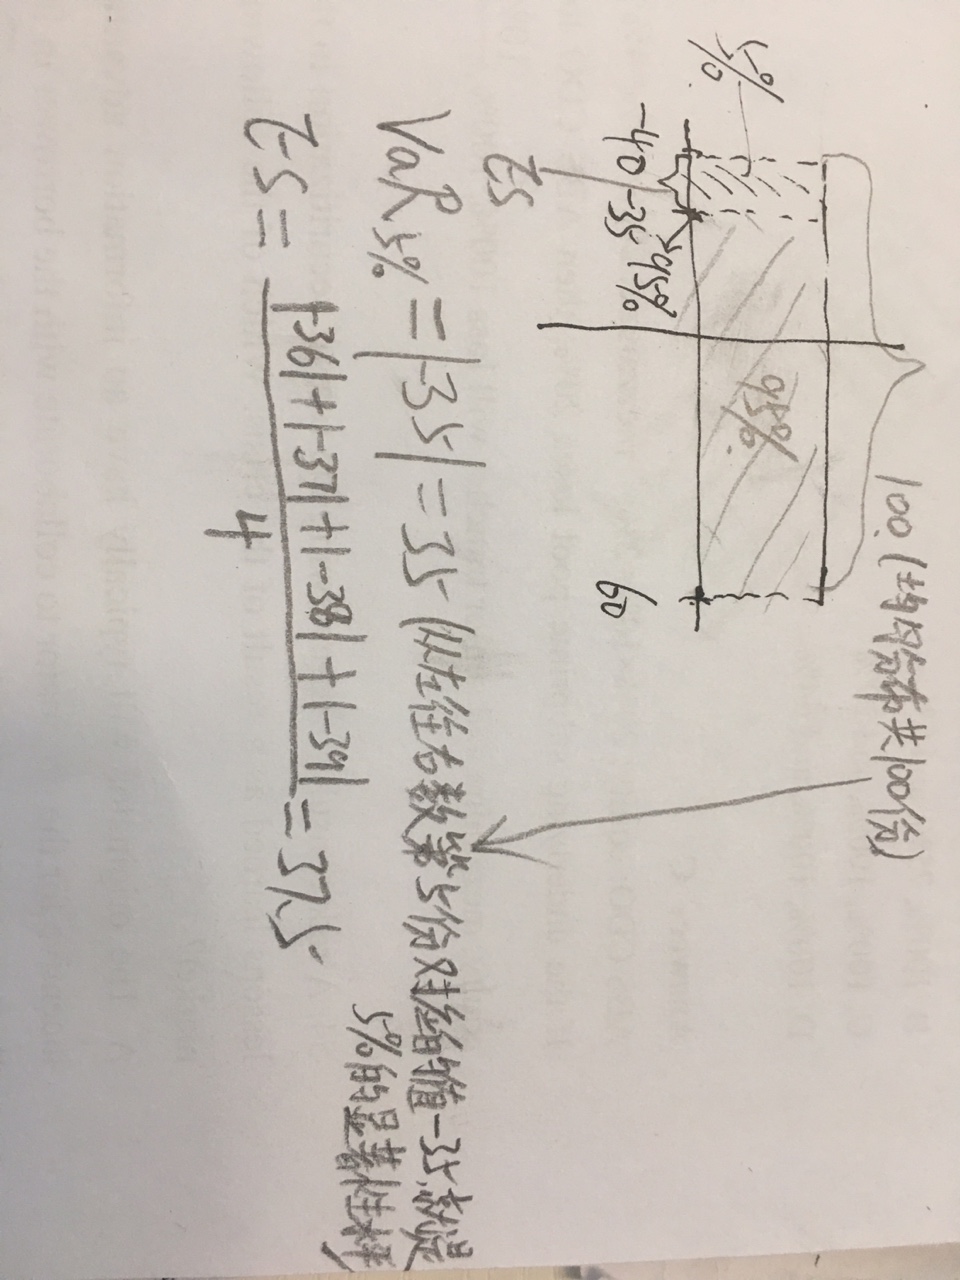 100.(均匀分布共100份)
5%
95%
-40 -35 95%
60
ES
VaR5% = |-35| = 35 (从左往右数第5份对应的值-35,就是
5%的显著性水平)
ES = |-36|+|-37|+|-38|+|-39| / 4 = 37.5